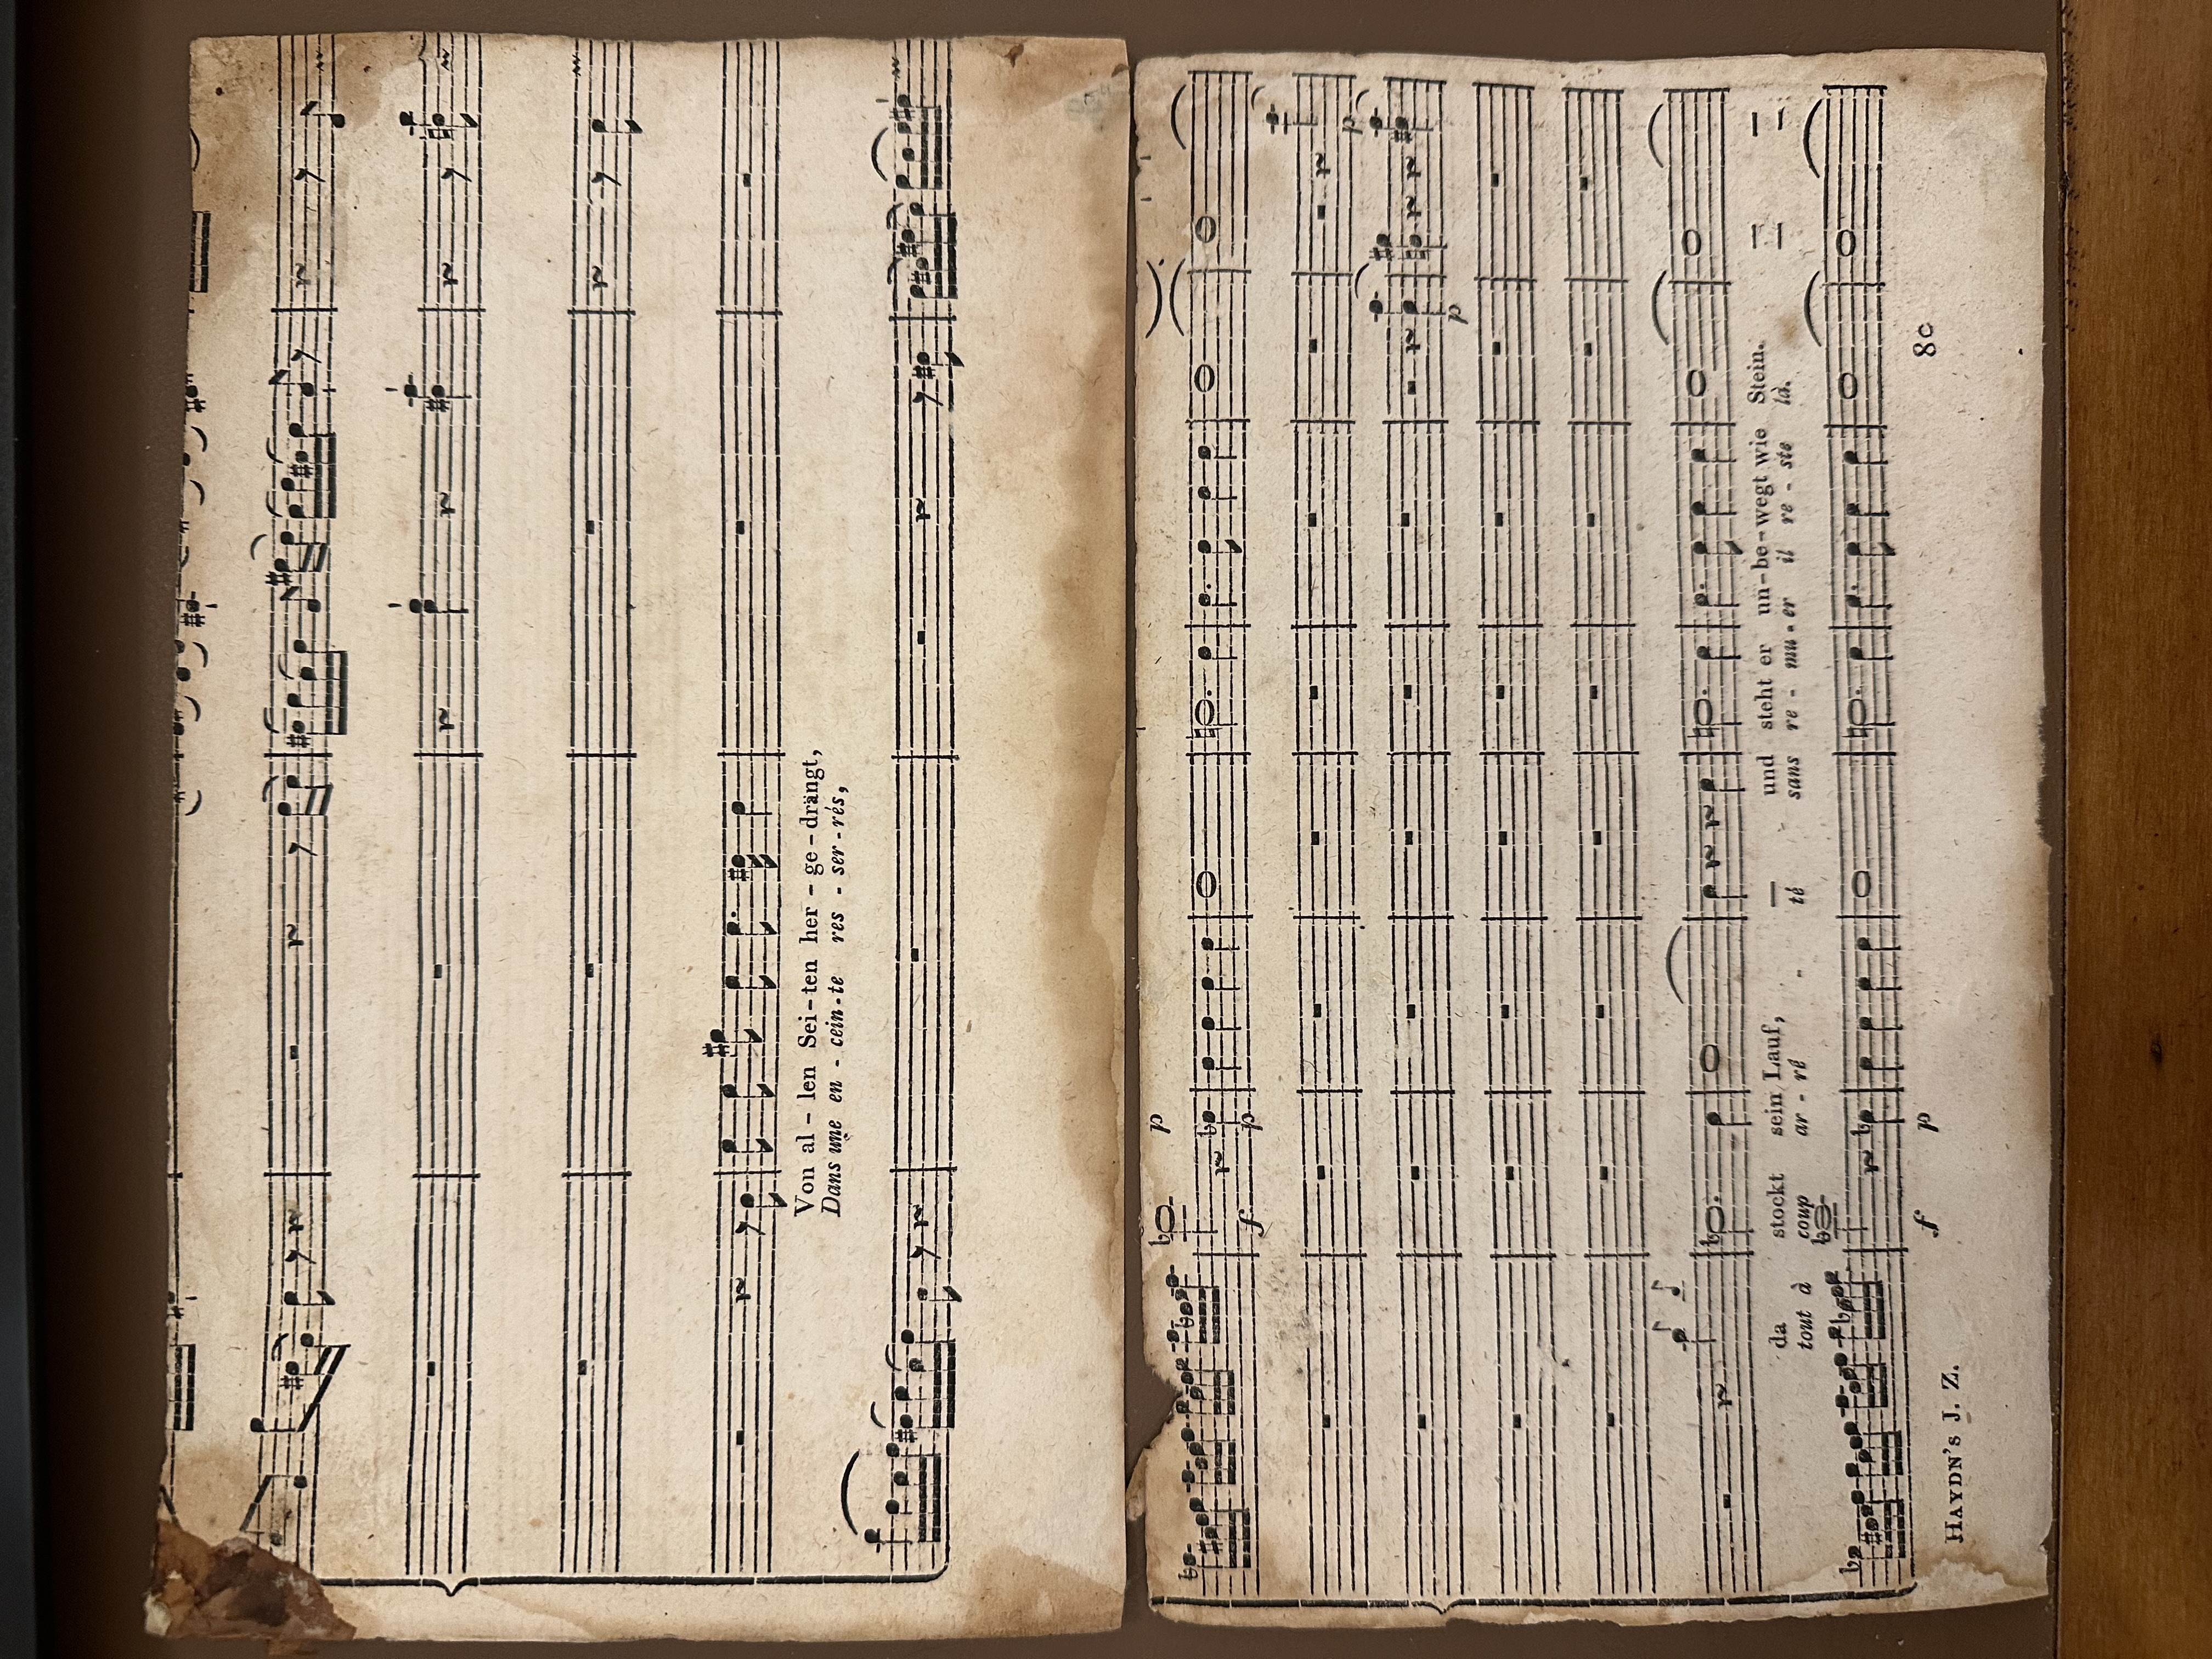 Von al – len Sei – ten her – ge – drängt,
Dans une en - cein - te res - ser - rés,
p
f p
p
p
da stockt sein Lauf, — und steht er un – be – wegt wie Stein. — —
tout à coup ar - rê - - té sans re - mu - er il re - ste là. — —
f p
HAYDN'S J. Z. 8c